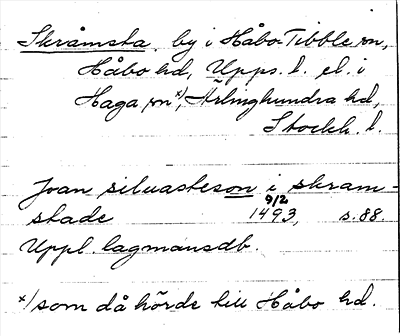 Skråmsta, by i Håbo-Tibble sn,
Håbo hd, Upps. l. el. i
Haga sn x), Ärlinghundra hd,
Stockh. l.
Joan siluasteson i skram-
stade 1493, 9/2 s. 88.
Uppl. lagmansdb.
x) som då hörde till Håbo hd.